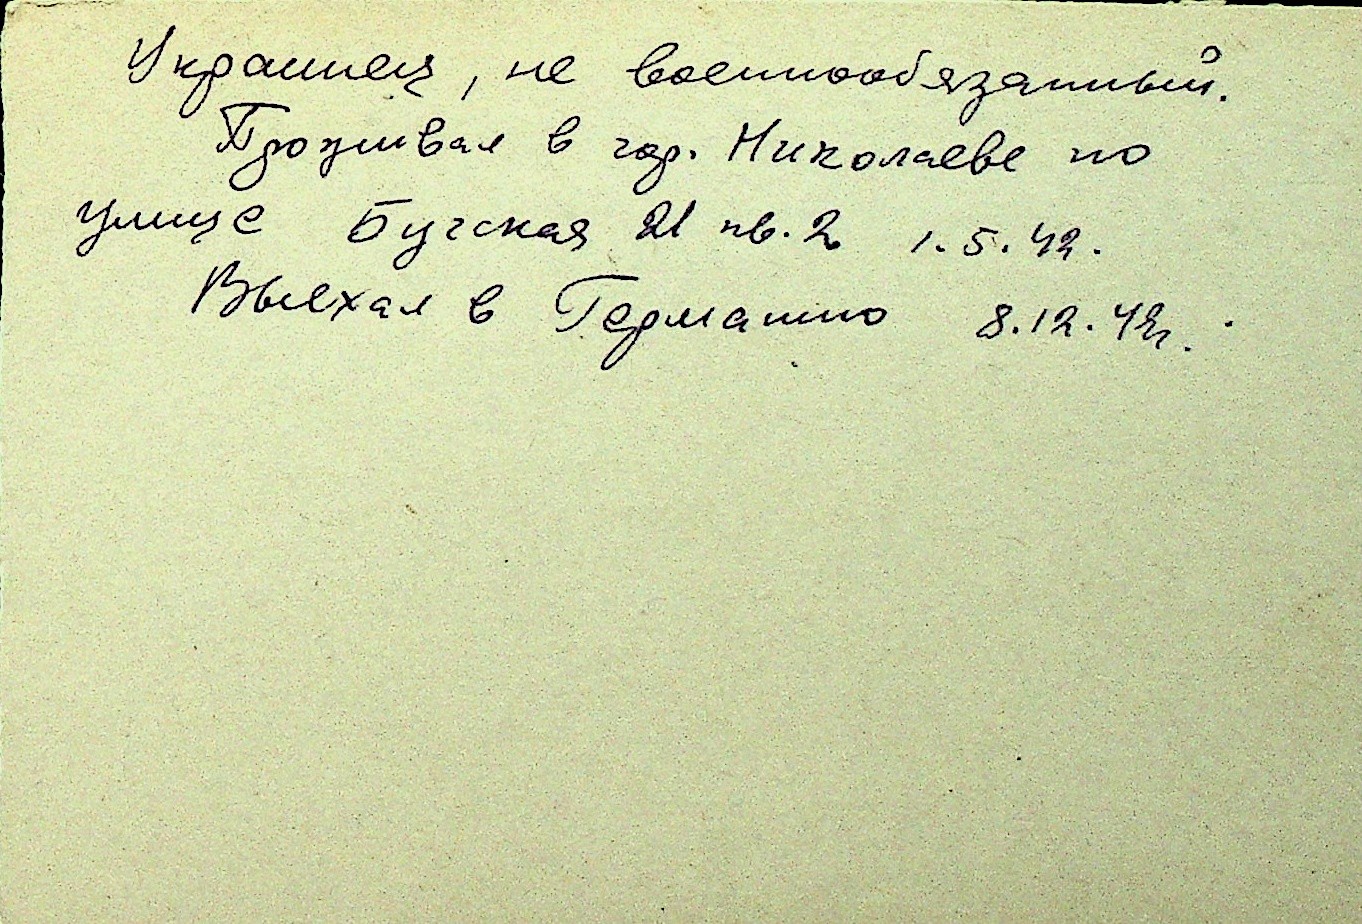 Украинец, не военнообязанный.
Проживал в гор. Николаеве по
улице Бугская 21 кв. 2 1.5.42.
Выехал в Германию 8.12.42г.